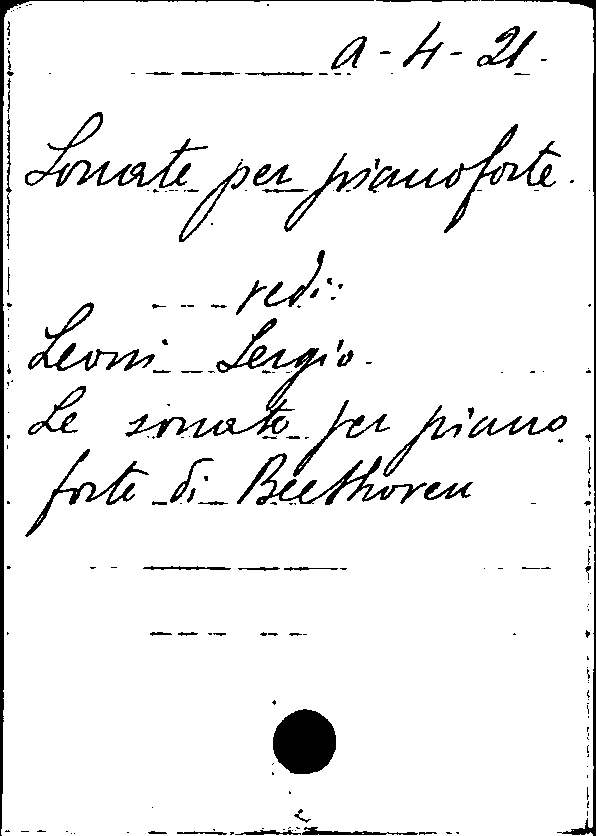 a-4-21.
Sonate per pianoforte.
vedi:
Leoni Sergio.
Le sonate per piano
forte di Beethoven